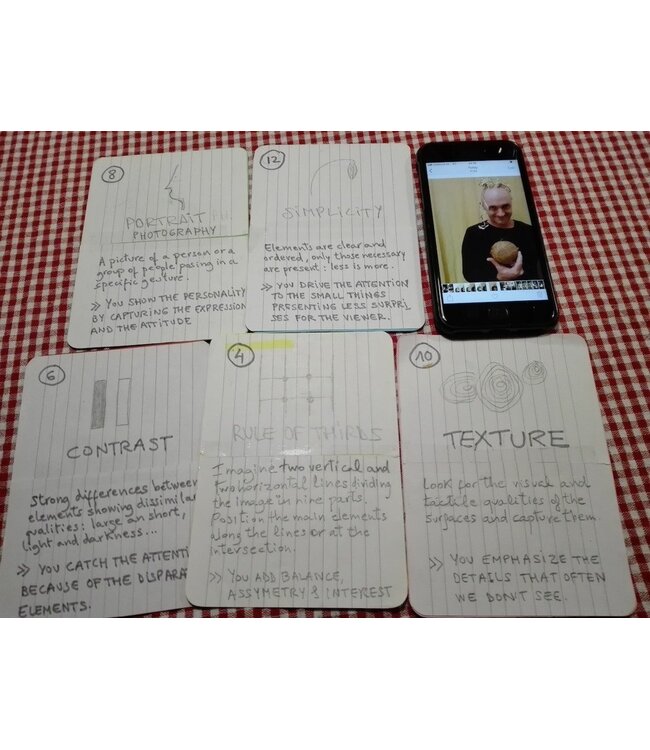 8
PORTRAIT
PHOTOGRAPHY
A picture of a person or a
group of people posing in a
specific gesture.
>> YOU SHOW THE PERSONALITY
BY CAPTURING THE EXPRESSION
AND THE ATTITUDE
12
SIMPLICITY
Elements are clear and
ordered, only those necessary
are present: less is more.
>> YOU DRIVE THE ATTENTION
TO THE SMALL THINGS
PRESENTING LESS SURPRI
SES FOR THE VIEWER.
6
CONTRAST
Strong differences between
elements showing dissimilar
qualities: large an short,
light and darkness...
>> YOU CATCH THE ATTENTI
BECAUSE OF THE DISPARA
ELEMENTS.
4
RULE OF THIRDS
Imagine two vertical and
two horizontal lines dividing
the image in nine parts.
Position the main elements
along the lines or at the
intersection.
>> YOU ADD BALANCE,
ASSYMETRY & INTEREST
10
TEXTURE
Look for the visual and
tactile qualities of the
surfaces and capture them
>> YOU EMPHASIZE THE
DETAILS THAT OFTEN
WE DON'T SEE.